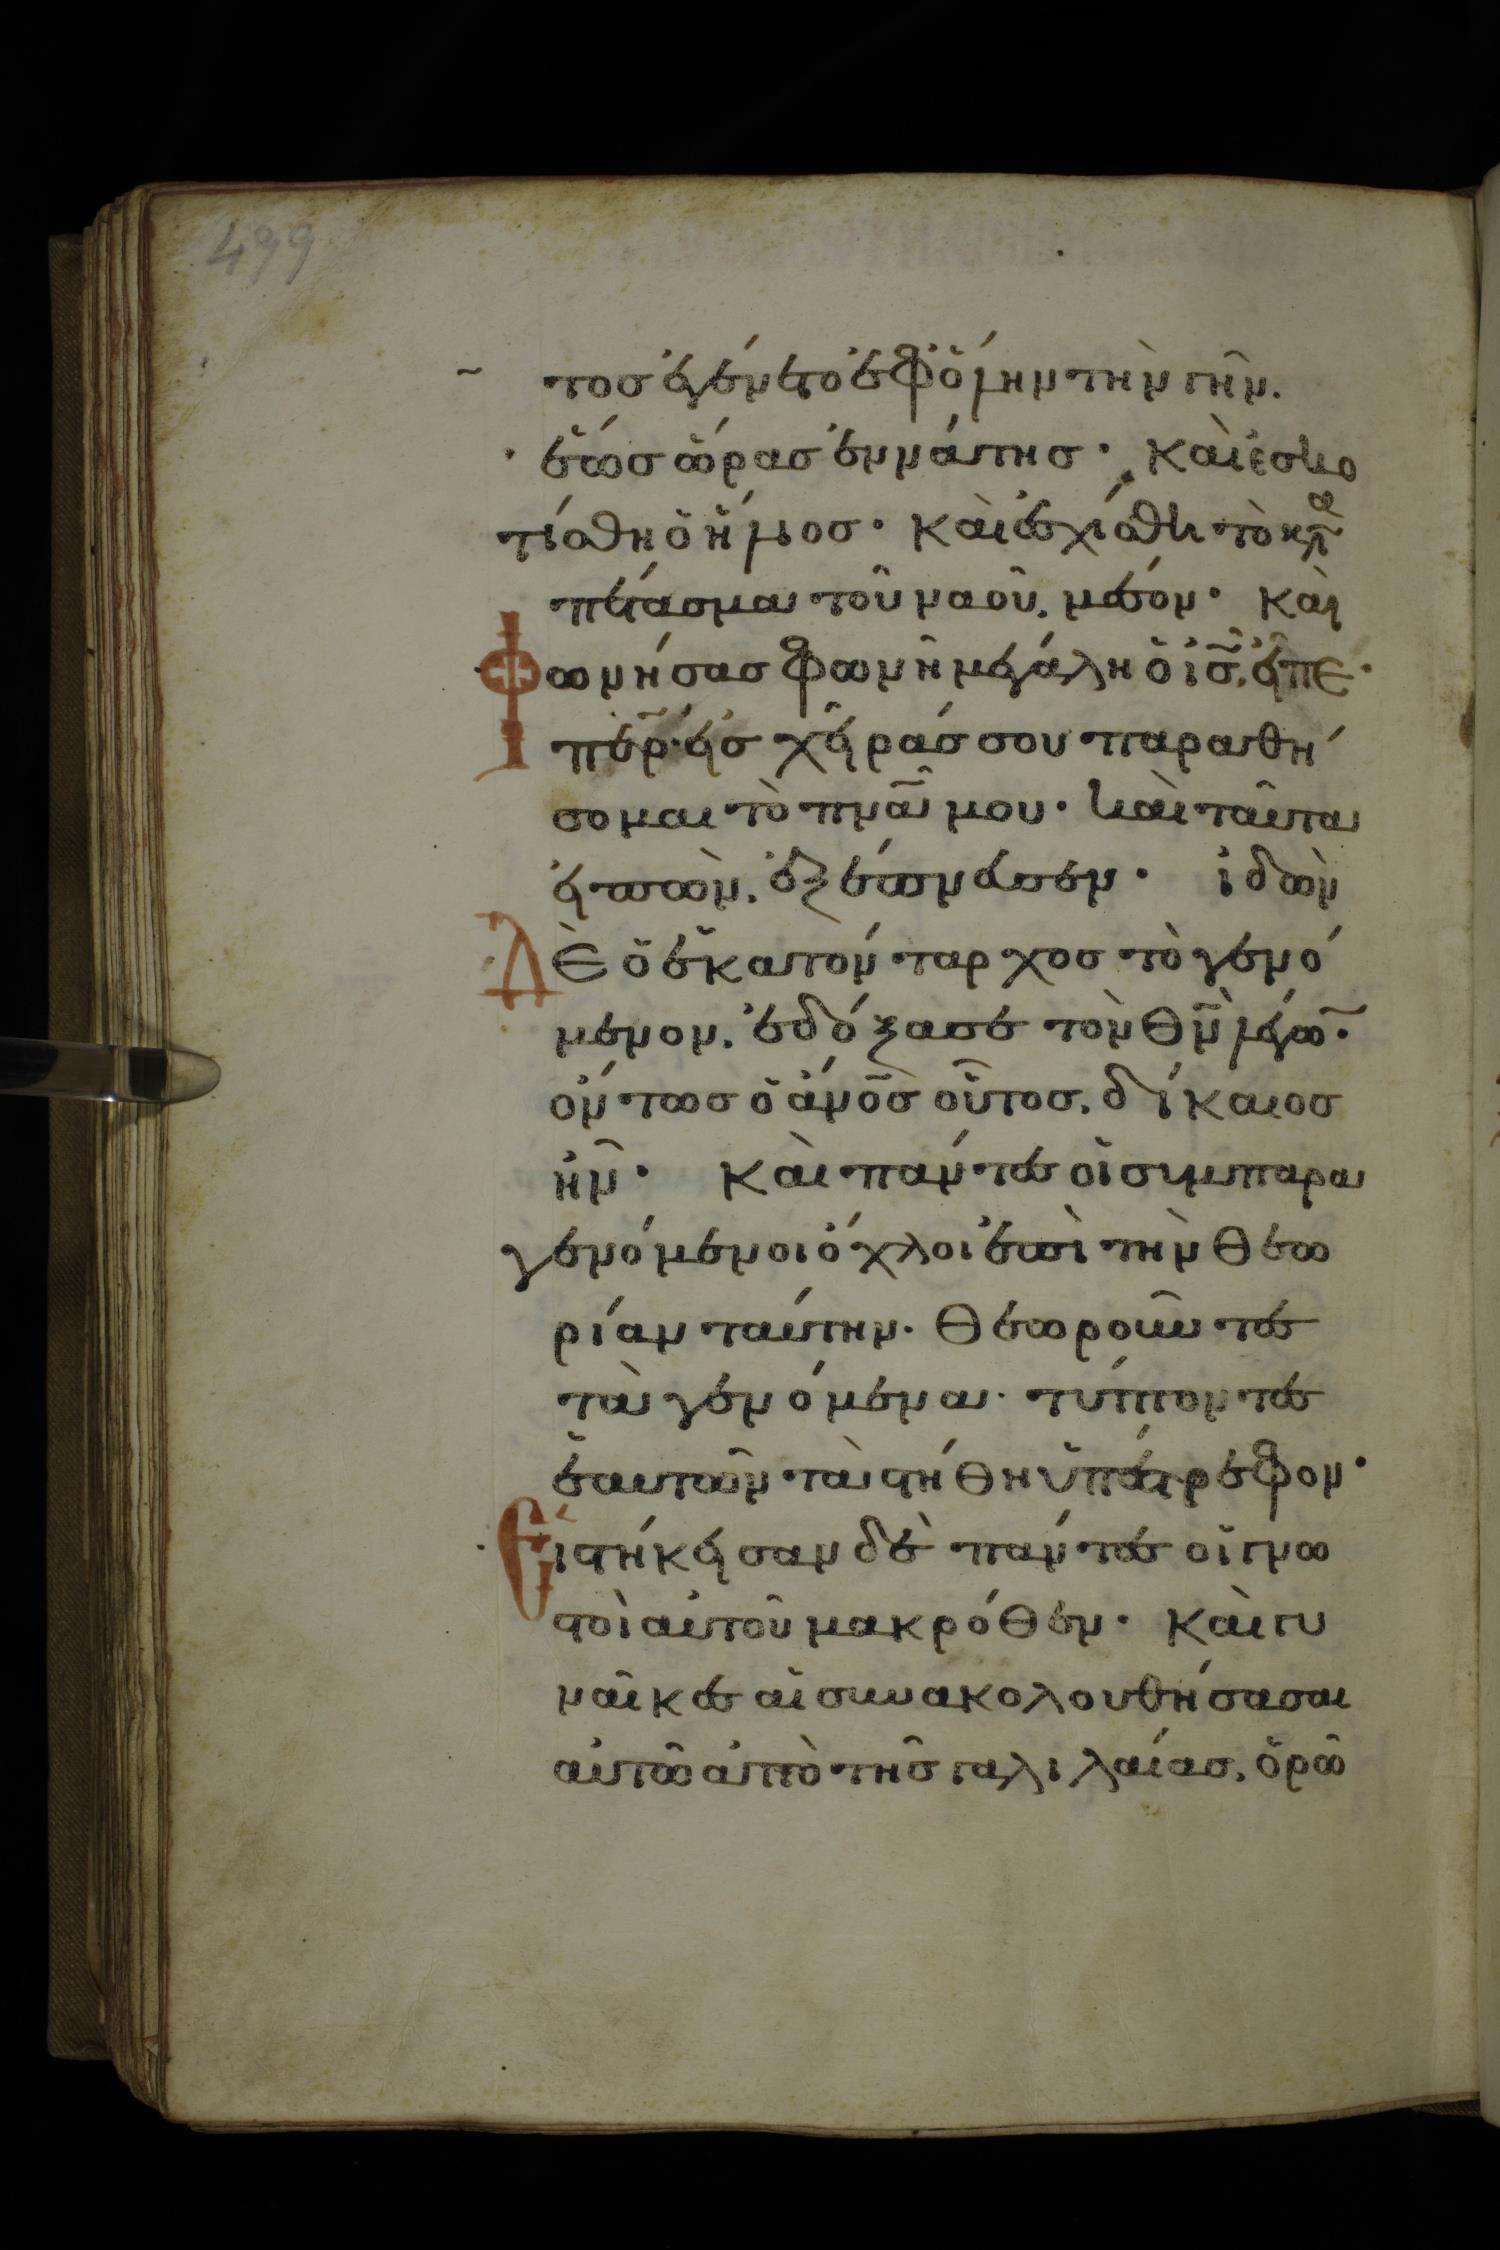 499
τοσ ἐγένετο ἐφ ὅλην τὴν γῆν.
ἕωσ ὥρασ ἐννάτησ· Καὶ ἐσκο
τίσθη ὁ ἥλιοσ· Καὶ ἐσχίσθη τὸ κατα
πέτασμα τοῦ ναοῦ, μέσον· Καὶ
Φωνήσασ φωνῆ μεγάλη ὁ ἰσ̄, εἶπε·
πέρ̄· εἰσ χεῖράσ σου παραθή
σομαι τὸ πνᾱ μου· Καὶ ταῦτα
εἰπὼν, ἐξέπνευσεν· ἰδὼν
Δὲ ὁ ἑκατόνταρχοσ τὸ γενό
μενον, ἐδόξασε τὸν θν̄ λέγω̄·
ὄντωσ ὁ ἄνοσ̄ οὗτοσ, δίκαιοσ
ἦν· Καὶ πάντεσ οἱ συμπαρα
γενόμενοι ὄχλοι ἐπὶ τὴν θεω
ρίαν ταύτην. θεωροῦντεσ
τὰ γενόμενα· τύπτοντεσ
ἑαυτῶν τὰ στήθη ὑπέστρεφον·
Εἱστήκεισαν δὲ πάντεσ οἱ γνω
στοὶ αὐτοῦ μακρόθεν· Καὶ γυ
ναῖκεσ αἱ συνακολουθήσασαι
αὐτῶ ἀπὸ τῆσ γαλιλαίασ, ὁρῶ